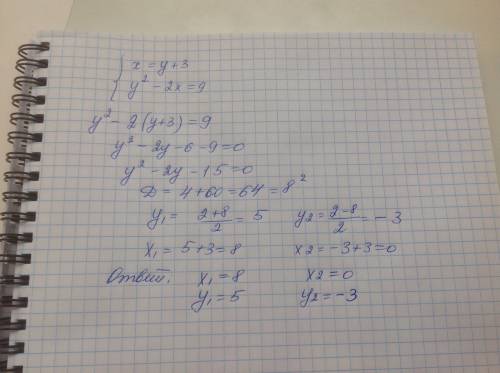 { x = y + 3
y² - 2x = 9
y² - 2(y+3) = 9
y² - 2y - 6 - 9 = 0
y² - 2y - 15 = 0
D = 4 + 60 = 64 = 8²
y₁ = (2+8)/2 = 5 y₂ = (2-8)/2 = -3
x₁ = 5 + 3 = 8 x₂ = -3 + 3 = 0
Ответ. x₁ = 8 x₂ = 0
y₁ = 5 y₂ = -3